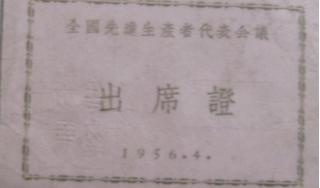 全國先進生產者代表会議
出席證
1956.4.